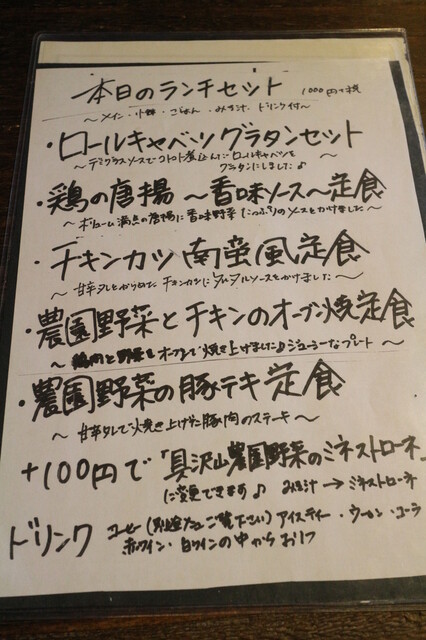 本日のランチセット 1000円+税
〜メイン・小鉢・ごはん・みそ汁・ドリンク付〜
・ロールキャベツグラタンセット
〜デミグラスソースでコトコト煮込んだロールキャベツを
グラタンにしました♪
・鶏の唐揚 〜香味ソース〜定食
〜ボリューム満点の唐揚に香味野菜たっぷりのソースをかけました〜
・チキンカツ南蛮風定食
〜甘辛タレとからめたチキンカツにタルタルソースをかけました〜
・農園野菜とチキンのオーブン焼定食
〜鶏肉と野菜をオーブンで焼き上げました♪ジューシーなプレート〜
・農園野菜の豚テキ定食
〜甘辛タレで焼き上げた豚肉のステーキ〜
+100円で「具沢山農園野菜のミネストローネ」
に変更できます♪ みそ汁→ミネストローネ
ドリンク
コーヒー(別途メニューご覧下さい)アイスティー・ウーロン・コーラ
赤ワイン・白ワインの中からお1つ